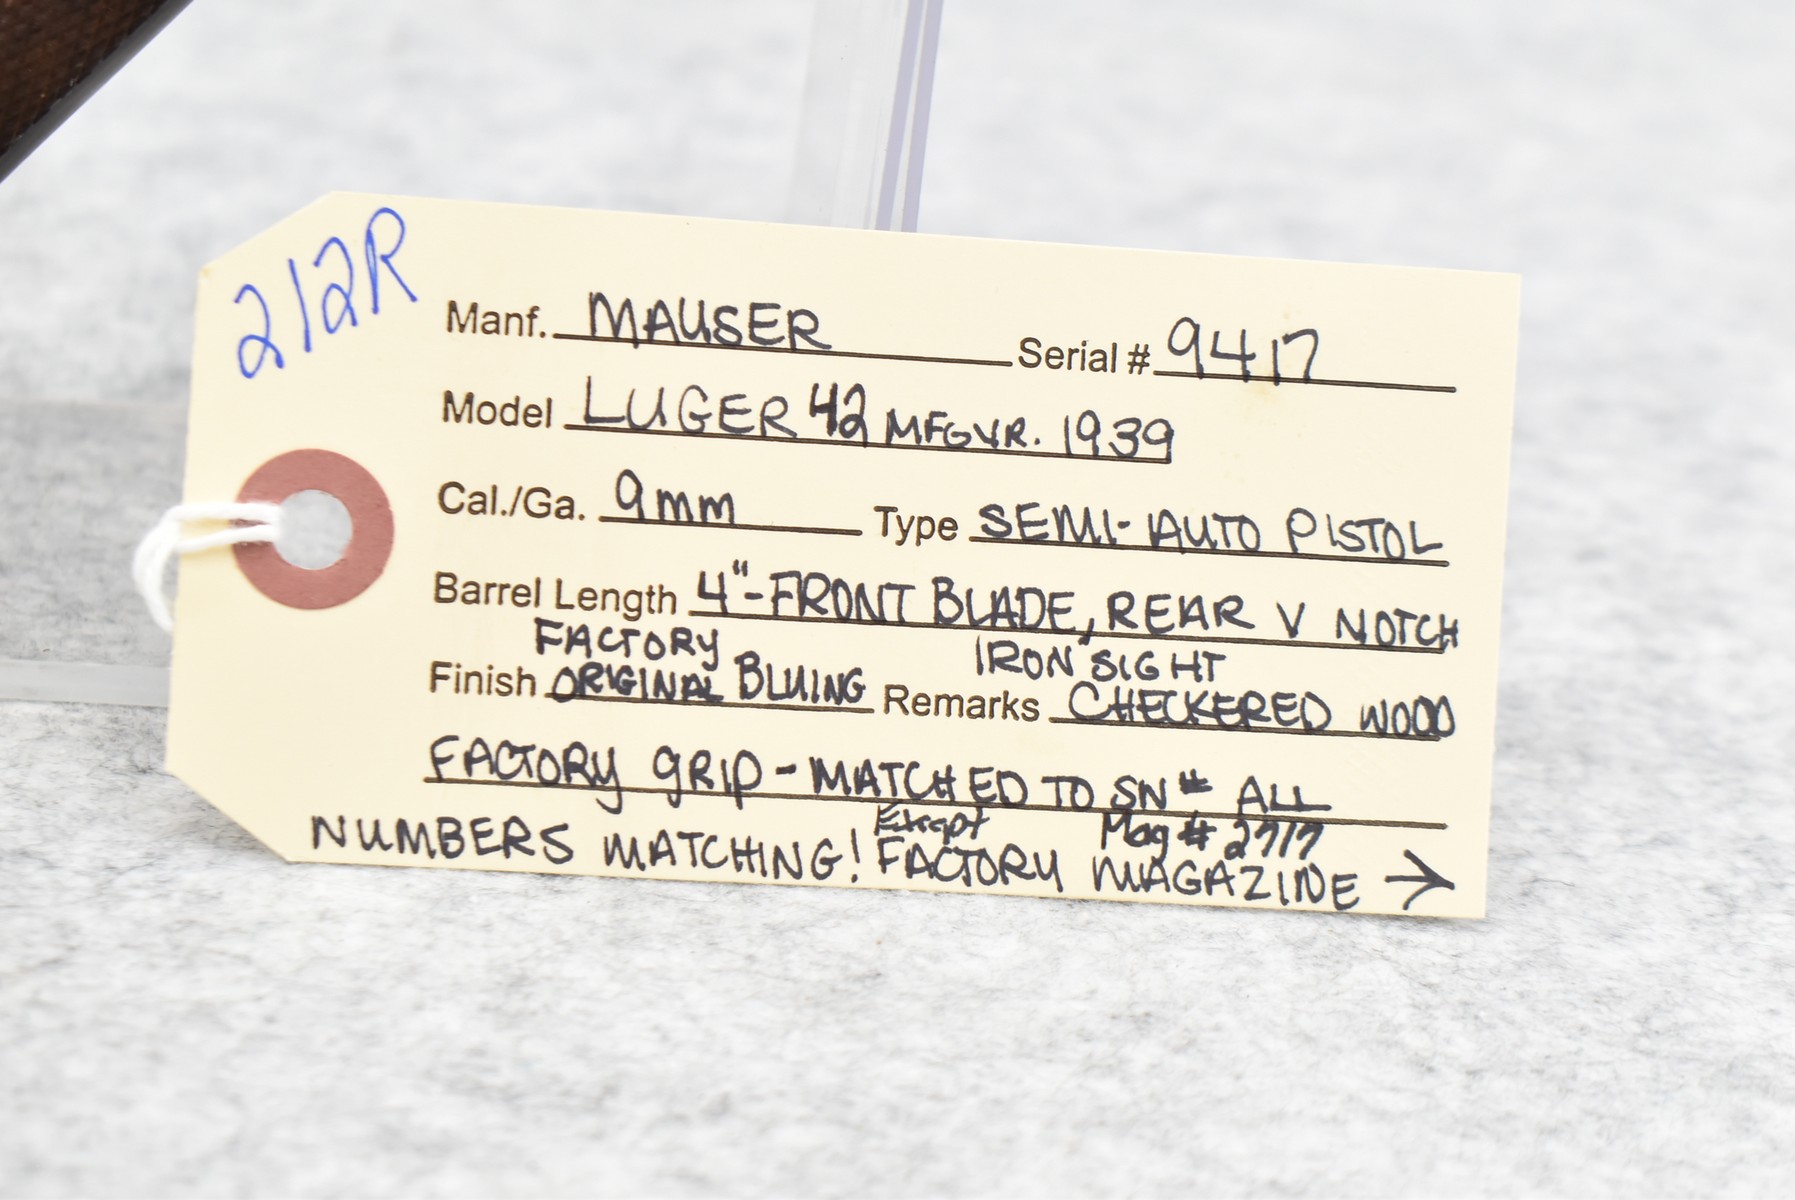 212R
Manf. MAUSER Serial # 9417
Model LUGER 42 MFGYR. 1939
Cal./Ga. 9mm Type SEMI-AUTO PISTOL
Barrel Length 4"-FRONT BLADE, REAR V NOTCH
FACTORY IRON SIGHT
Finish ORIGINAL BLUING Remarks CHECKERED WOOD
FACTORY GRIP - MATCHED TO SN# ALL
Except Mag # 2717
NUMBERS MATCHING! FACTORY MAGAZINE →